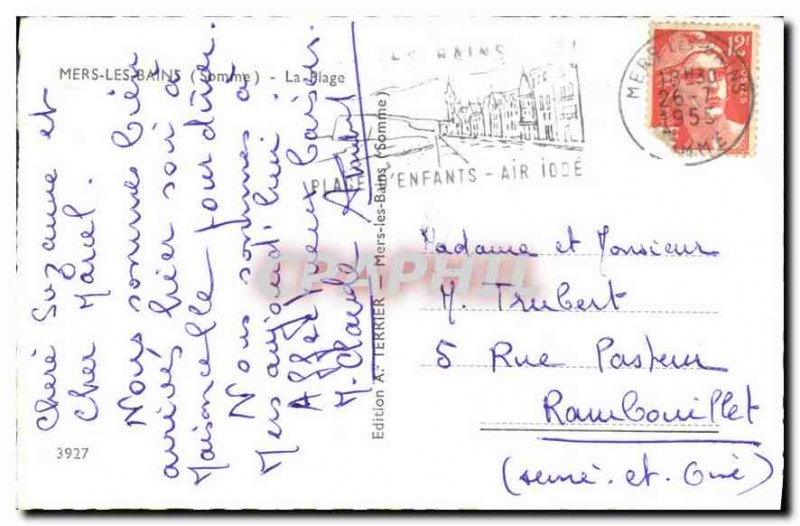 MERS-LES-BAINS (Somme) - La Plage
Chère Suzanne et
Cher Marcel.
Nous sommes bien
arrivés hier soir à
Maisoncelle pour dîner.
Nous sommes à
Mers aujourd'hui.
Affectueux baisers
M. Claude
3927
Edition A. TERRIER — Mers-les-Bains (Somme)
LES BAINS
PLAGE D'ENFANTS - AIR IODÉ
MERS-LES-BAINS
18H30
26-7
1955
SOMME
12F
Madame et Monsieur
M. Trubert
5 Rue Pasteur
Rambouillet
(Seine-et-Oise)
CPAPHIL